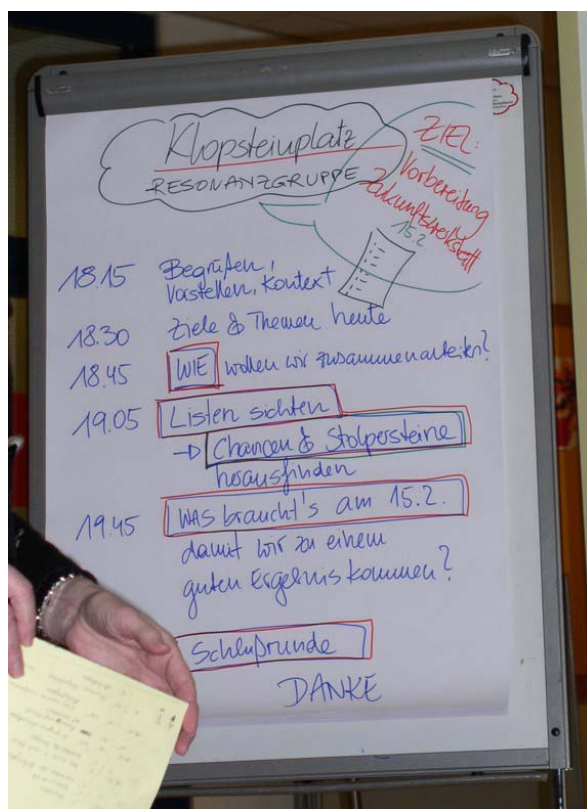 Klopsteinplatz
RESONANZGRUPPE
ZIEL:
Vorbereitung
Zukunftswerkstatt
15.2
18.15 Begrüßen,
Vorstellen, Kontext
18.30 Ziele & Themen heute
18.45 WIE wollen wir zusammenarbeiten?
19.05 Listen sichten
→ Chancen & Stolpersteine
herausfinden
19.45 WAS braucht's am 15.2.
damit wir zu einem
guten Ergebnis kommen?
Schlußrunde
DANKE